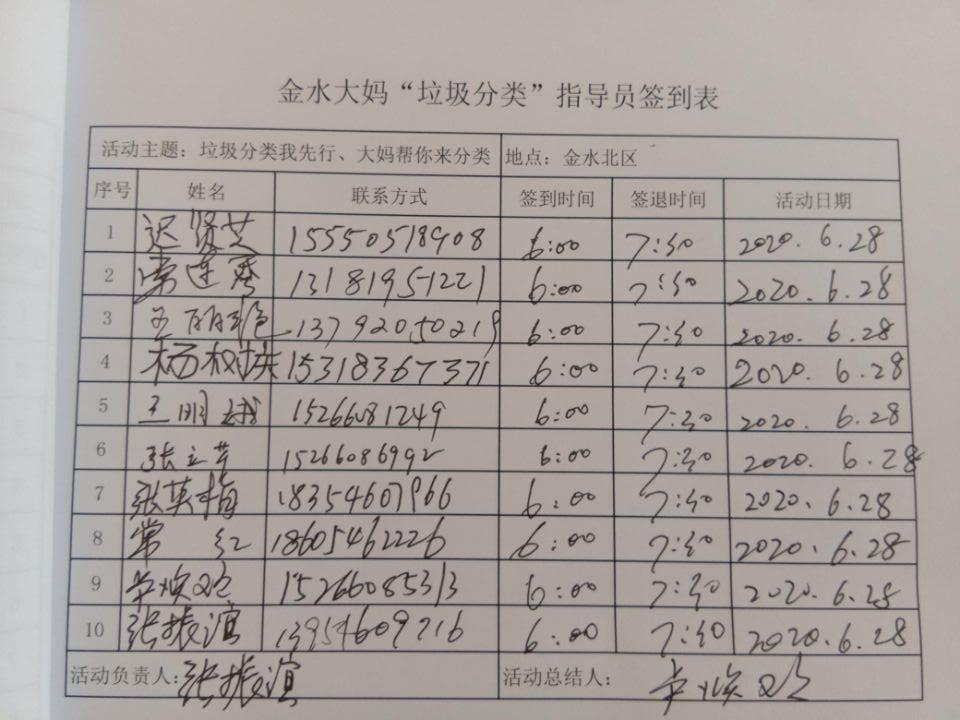 金水大妈“垃圾分类”指导员签到表
活动主题：垃圾分类我先行、大妈帮你来分类 地点：金水北区
序号 姓名 联系方式 签到时间 签退时间 活动日期
1 迟贤芝 15550518908 6:00 7:30 2020.6.28
2 常连香 13181951221 6:00 7:30 2020.6.28
3 王丽艳 13792050219 6:00 7:30 2020.6.28
4 杨树庆 15318367371 6:00 7:30 2020.6.28
5 王明 15266081249 6:00 7:30 2020.6.28
6 张立芳 15266086992 6:00 7:30 2020.6.28
7 张英梅 18354607966 6:00 7:30 2020.6.28
8 常红 18605462226 6:00 7:30 2020.6.28
9 15266085313 6:00 7:30 2020.6.28
10 张振谊 13954609716 6:00 7:30 2020.6.28
活动负责人：张振谊 活动总结人：